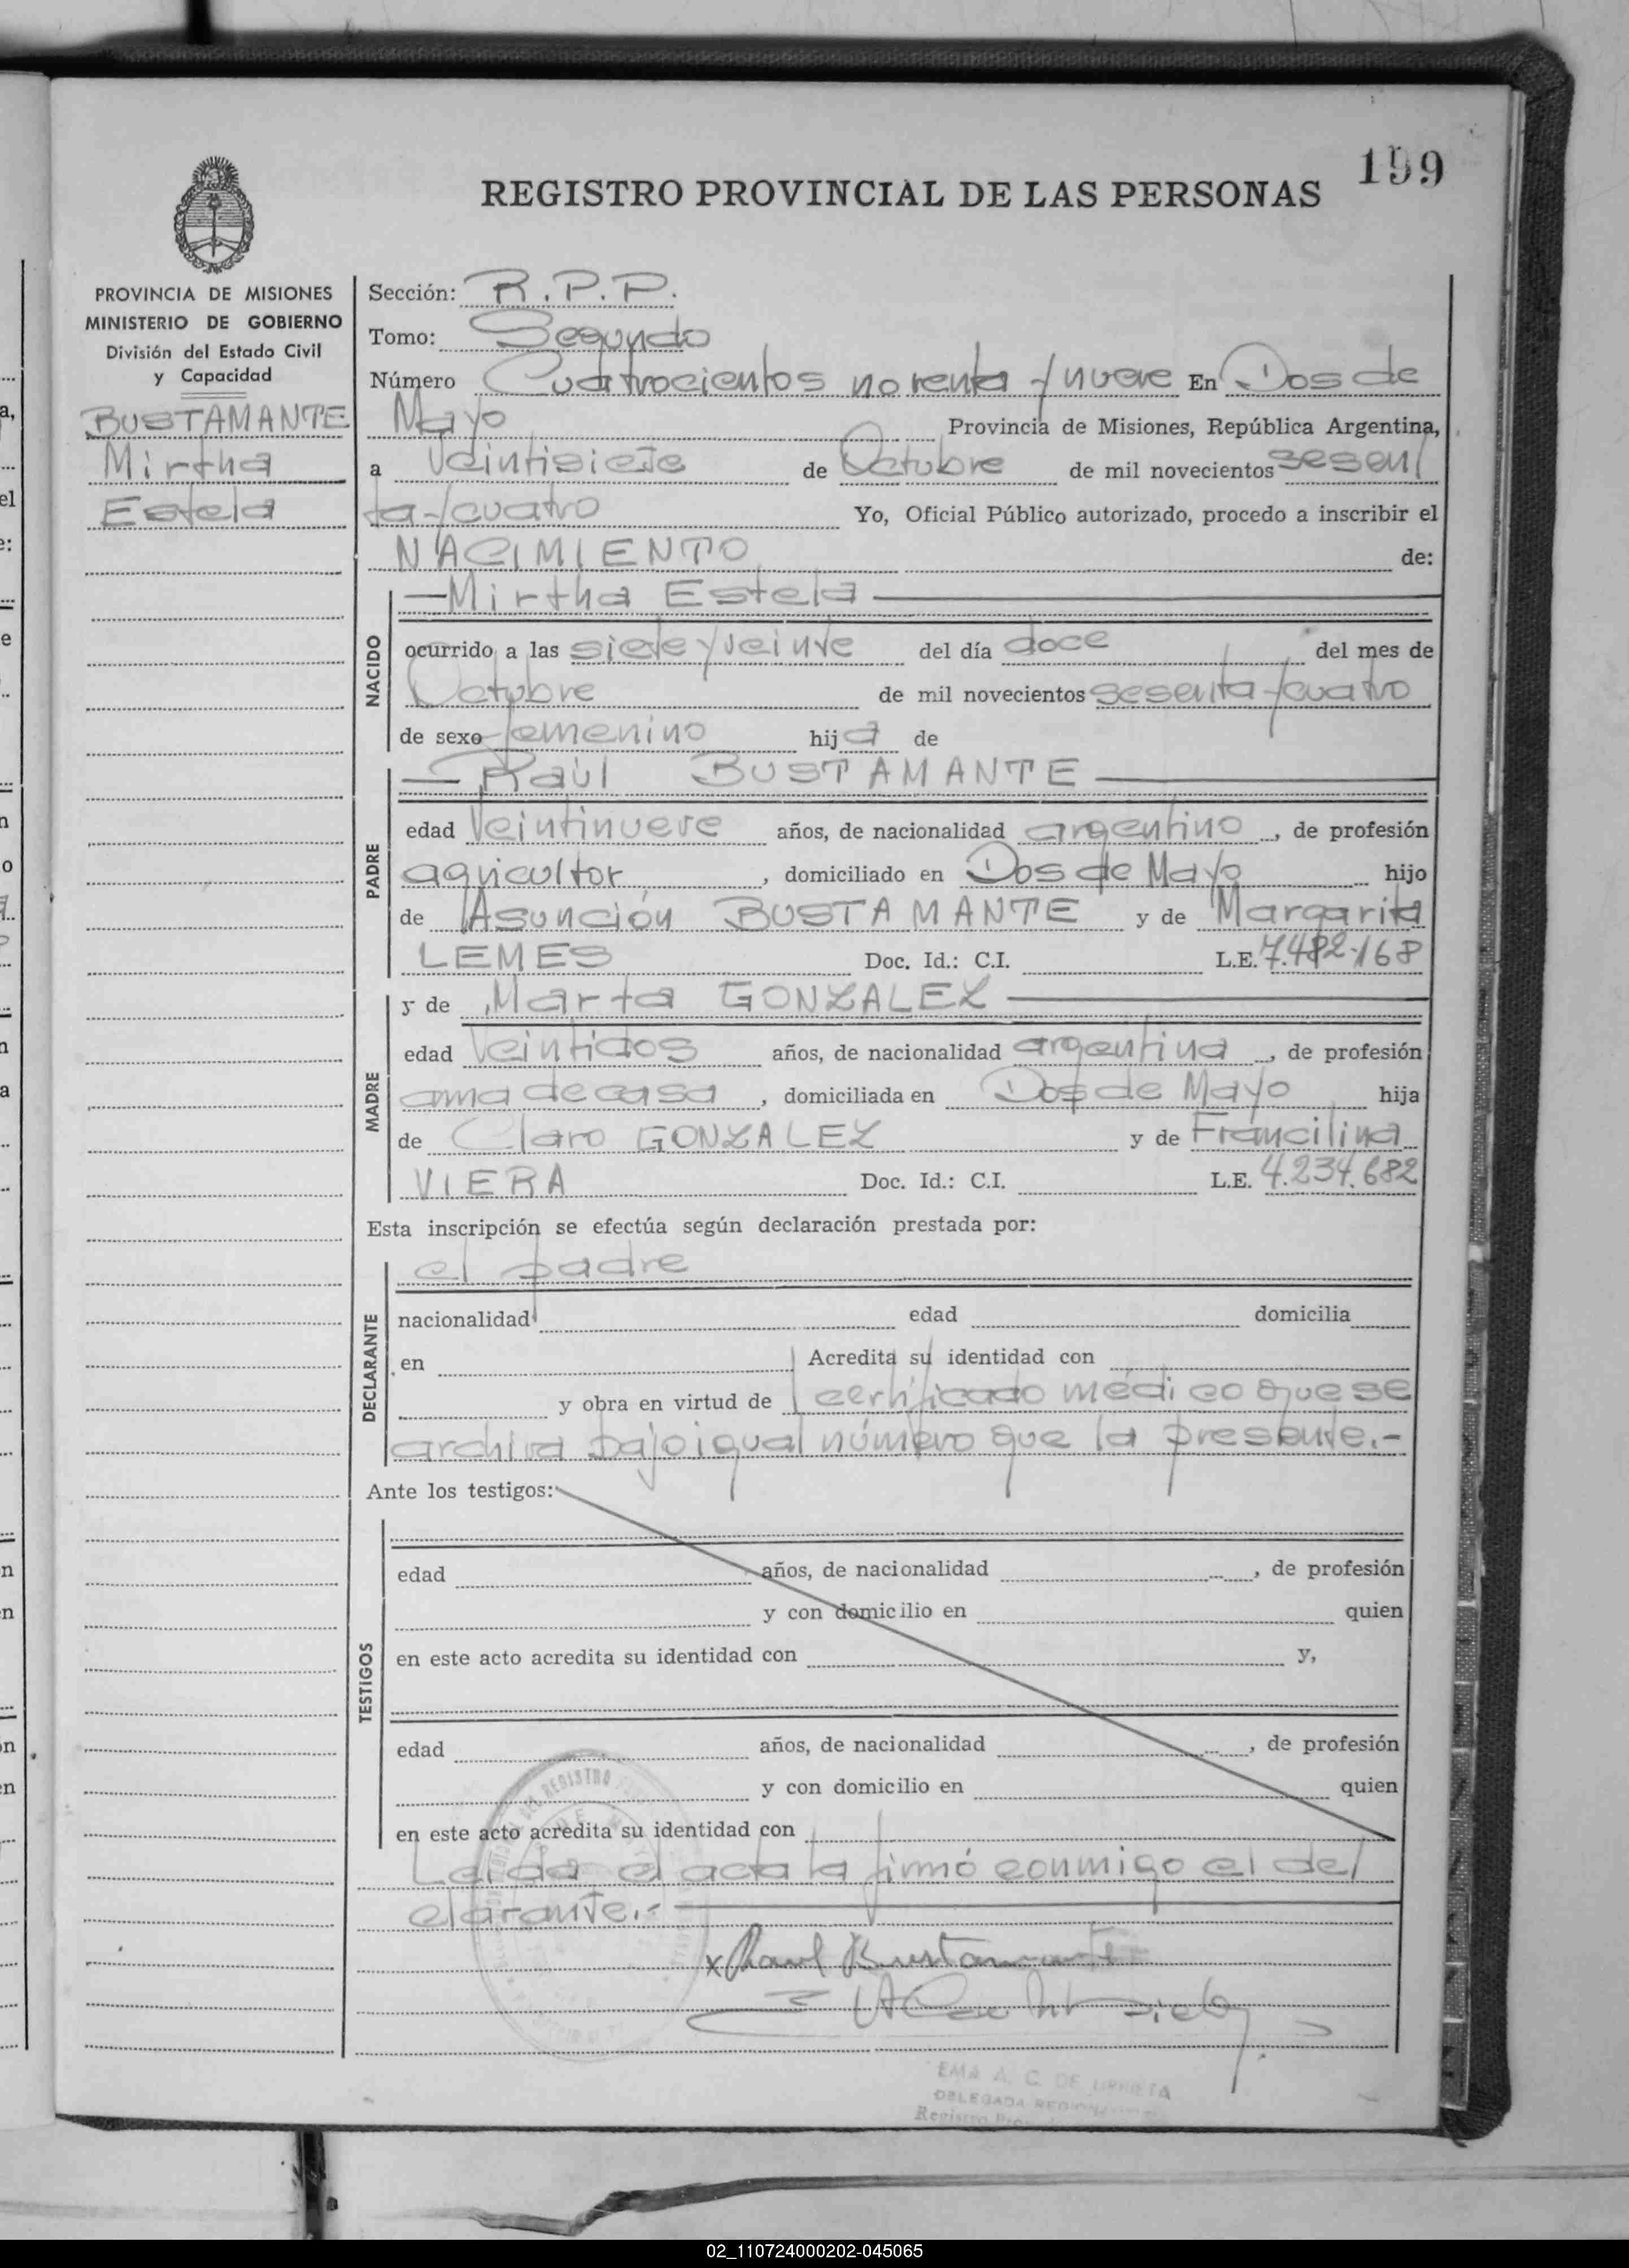 159
REGISTRO PROVINCIAL DE LAS PERSONAS
PROVINCIA DE MISIONES
MINISTERIO DE GOBIERNO
División del Estado Civil
y Capacidad
BUSTAMANTE
Mirtha
Estela
Sección: R.P.P.
Tomo: Segundo
Número Cuatrocientos noventa y nueve En Dos de
Mayo Provincia de Misiones, República Argentina,
a Veintisiete de Octubre de mil novecientos sesen
ta y cuatro Yo, Oficial Público autorizado, procedo a inscribir el
NACIMIENTO de:
NACIDO
— Mirtha Estela —
ocurrido a las siete y veinte del día doce del mes de
Octubre de mil novecientos sesenta y cuatro
de sexo femenino hija de
PADRE
— Raúl BUSTAMANTE —
edad Veintinueve años, de nacionalidad argentino, de profesión
agricultor, domiciliado en Dos de Mayo hijo
de Asunción BUSTAMANTE y de Margarita
LEMES Doc. Id.: C.I. L.E. 7.482.168
MADRE
y de Marta GONZALEZ —
edad Veintidos años, de nacionalidad argentina, de profesión
ama de casa, domiciliada en Dos de Mayo hija
de Claro GONZALEZ y de Francilina
VIERA Doc. Id.: C.I. L.E. 4.234.682
Esta inscripción se efectúa según declaración prestada por:
DECLARANTE
el padre
nacionalidad edad domicilia
en Acredita su identidad con
y obra en virtud de certificado médico que se
archiva bajo igual número que la presente.-
Ante los testigos:
TESTIGOS
edad años, de nacionalidad , de profesión
y con domicilio en quien
en este acto acredita su identidad con y,
edad años, de nacionalidad , de profesión
y con domicilio en quien
en este acto acredita su identidad con
Leída el acta la firmó conmigo el de
clarante.- —
x Raul Bustamante
EMA A. C. DE URRIETA
DELEGADA
Registro
02_110724000202-045065